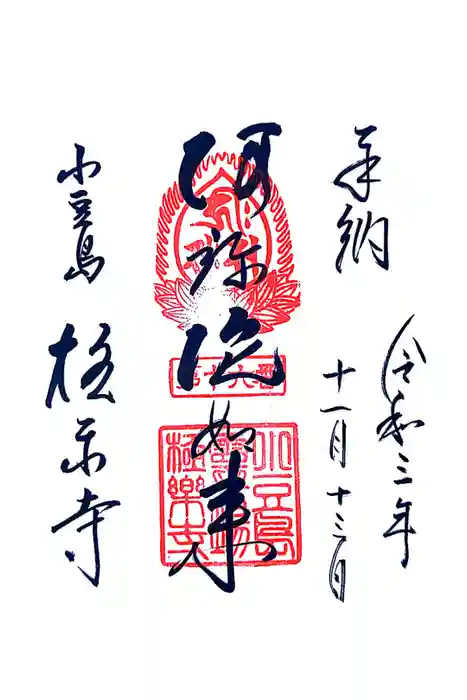 奉納
令和三年
十一月十三日
阿弥陀如来
第十六番
小豆島
極楽寺
小豆島
極樂寺